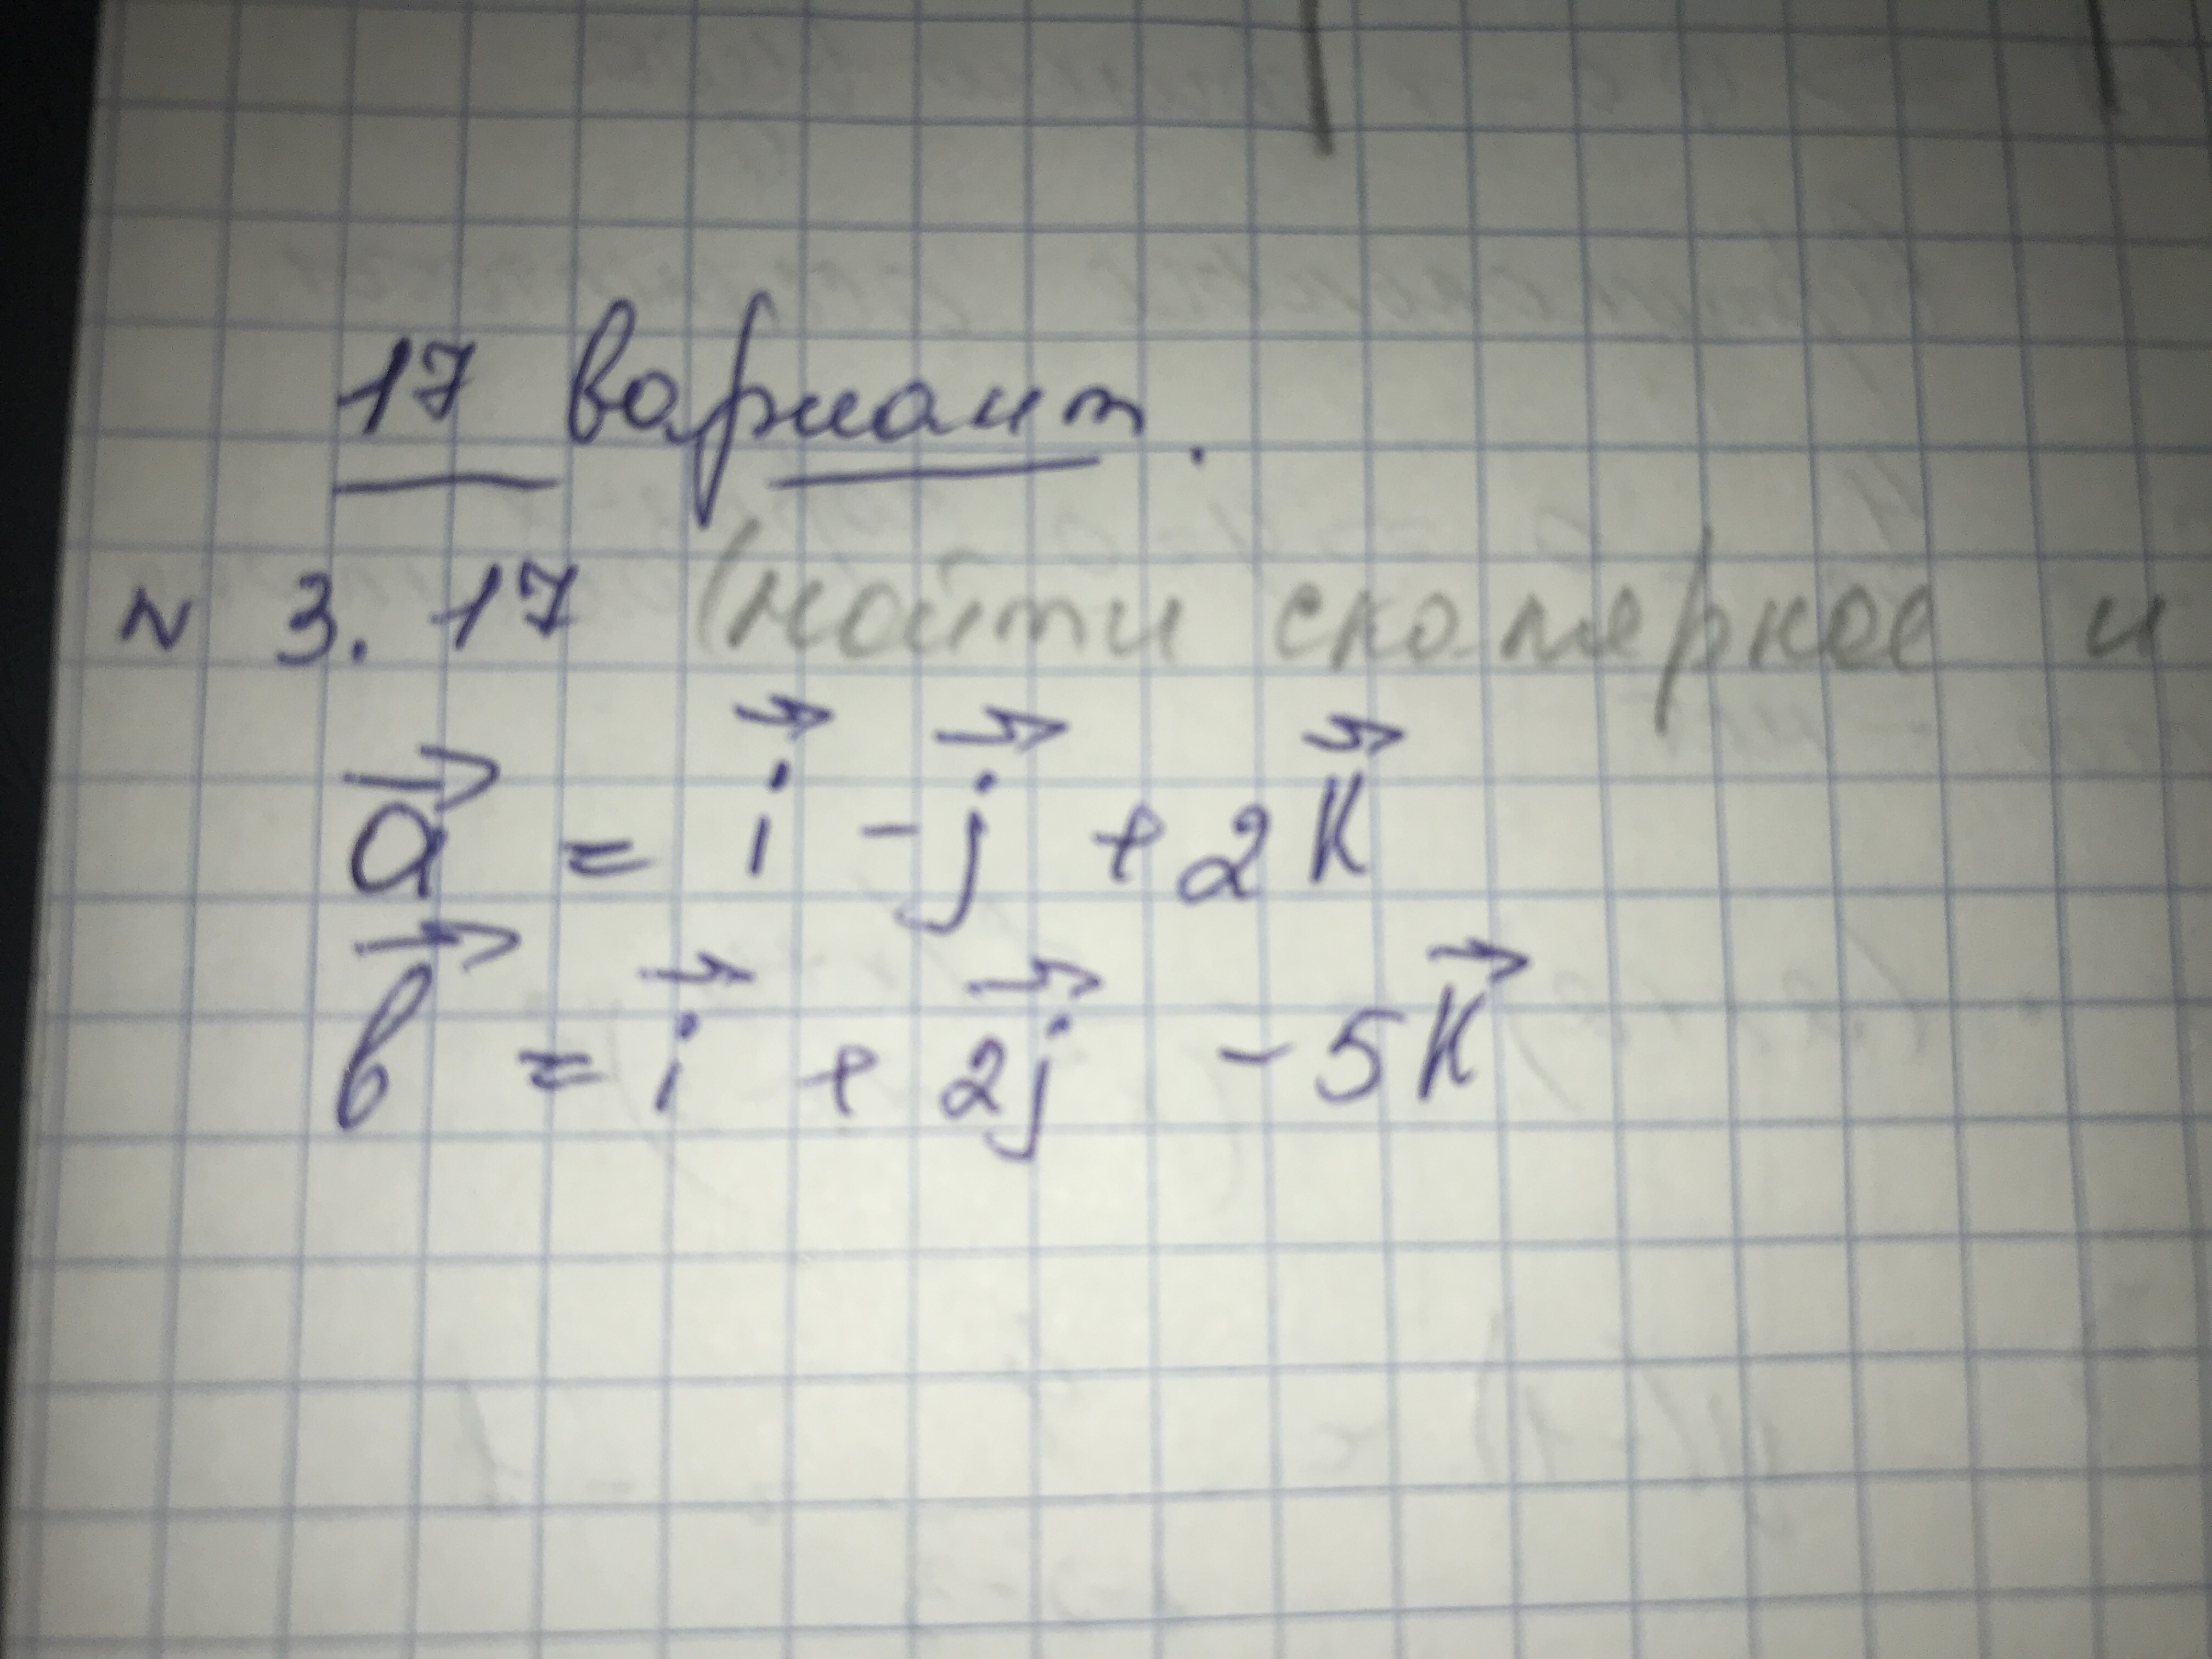 17 вариант.
N 3.17 (найти скалярное и
a⃗ = i⃗ - j⃗ + 2k⃗
b⃗ = i⃗ + 2j⃗ - 5k⃗